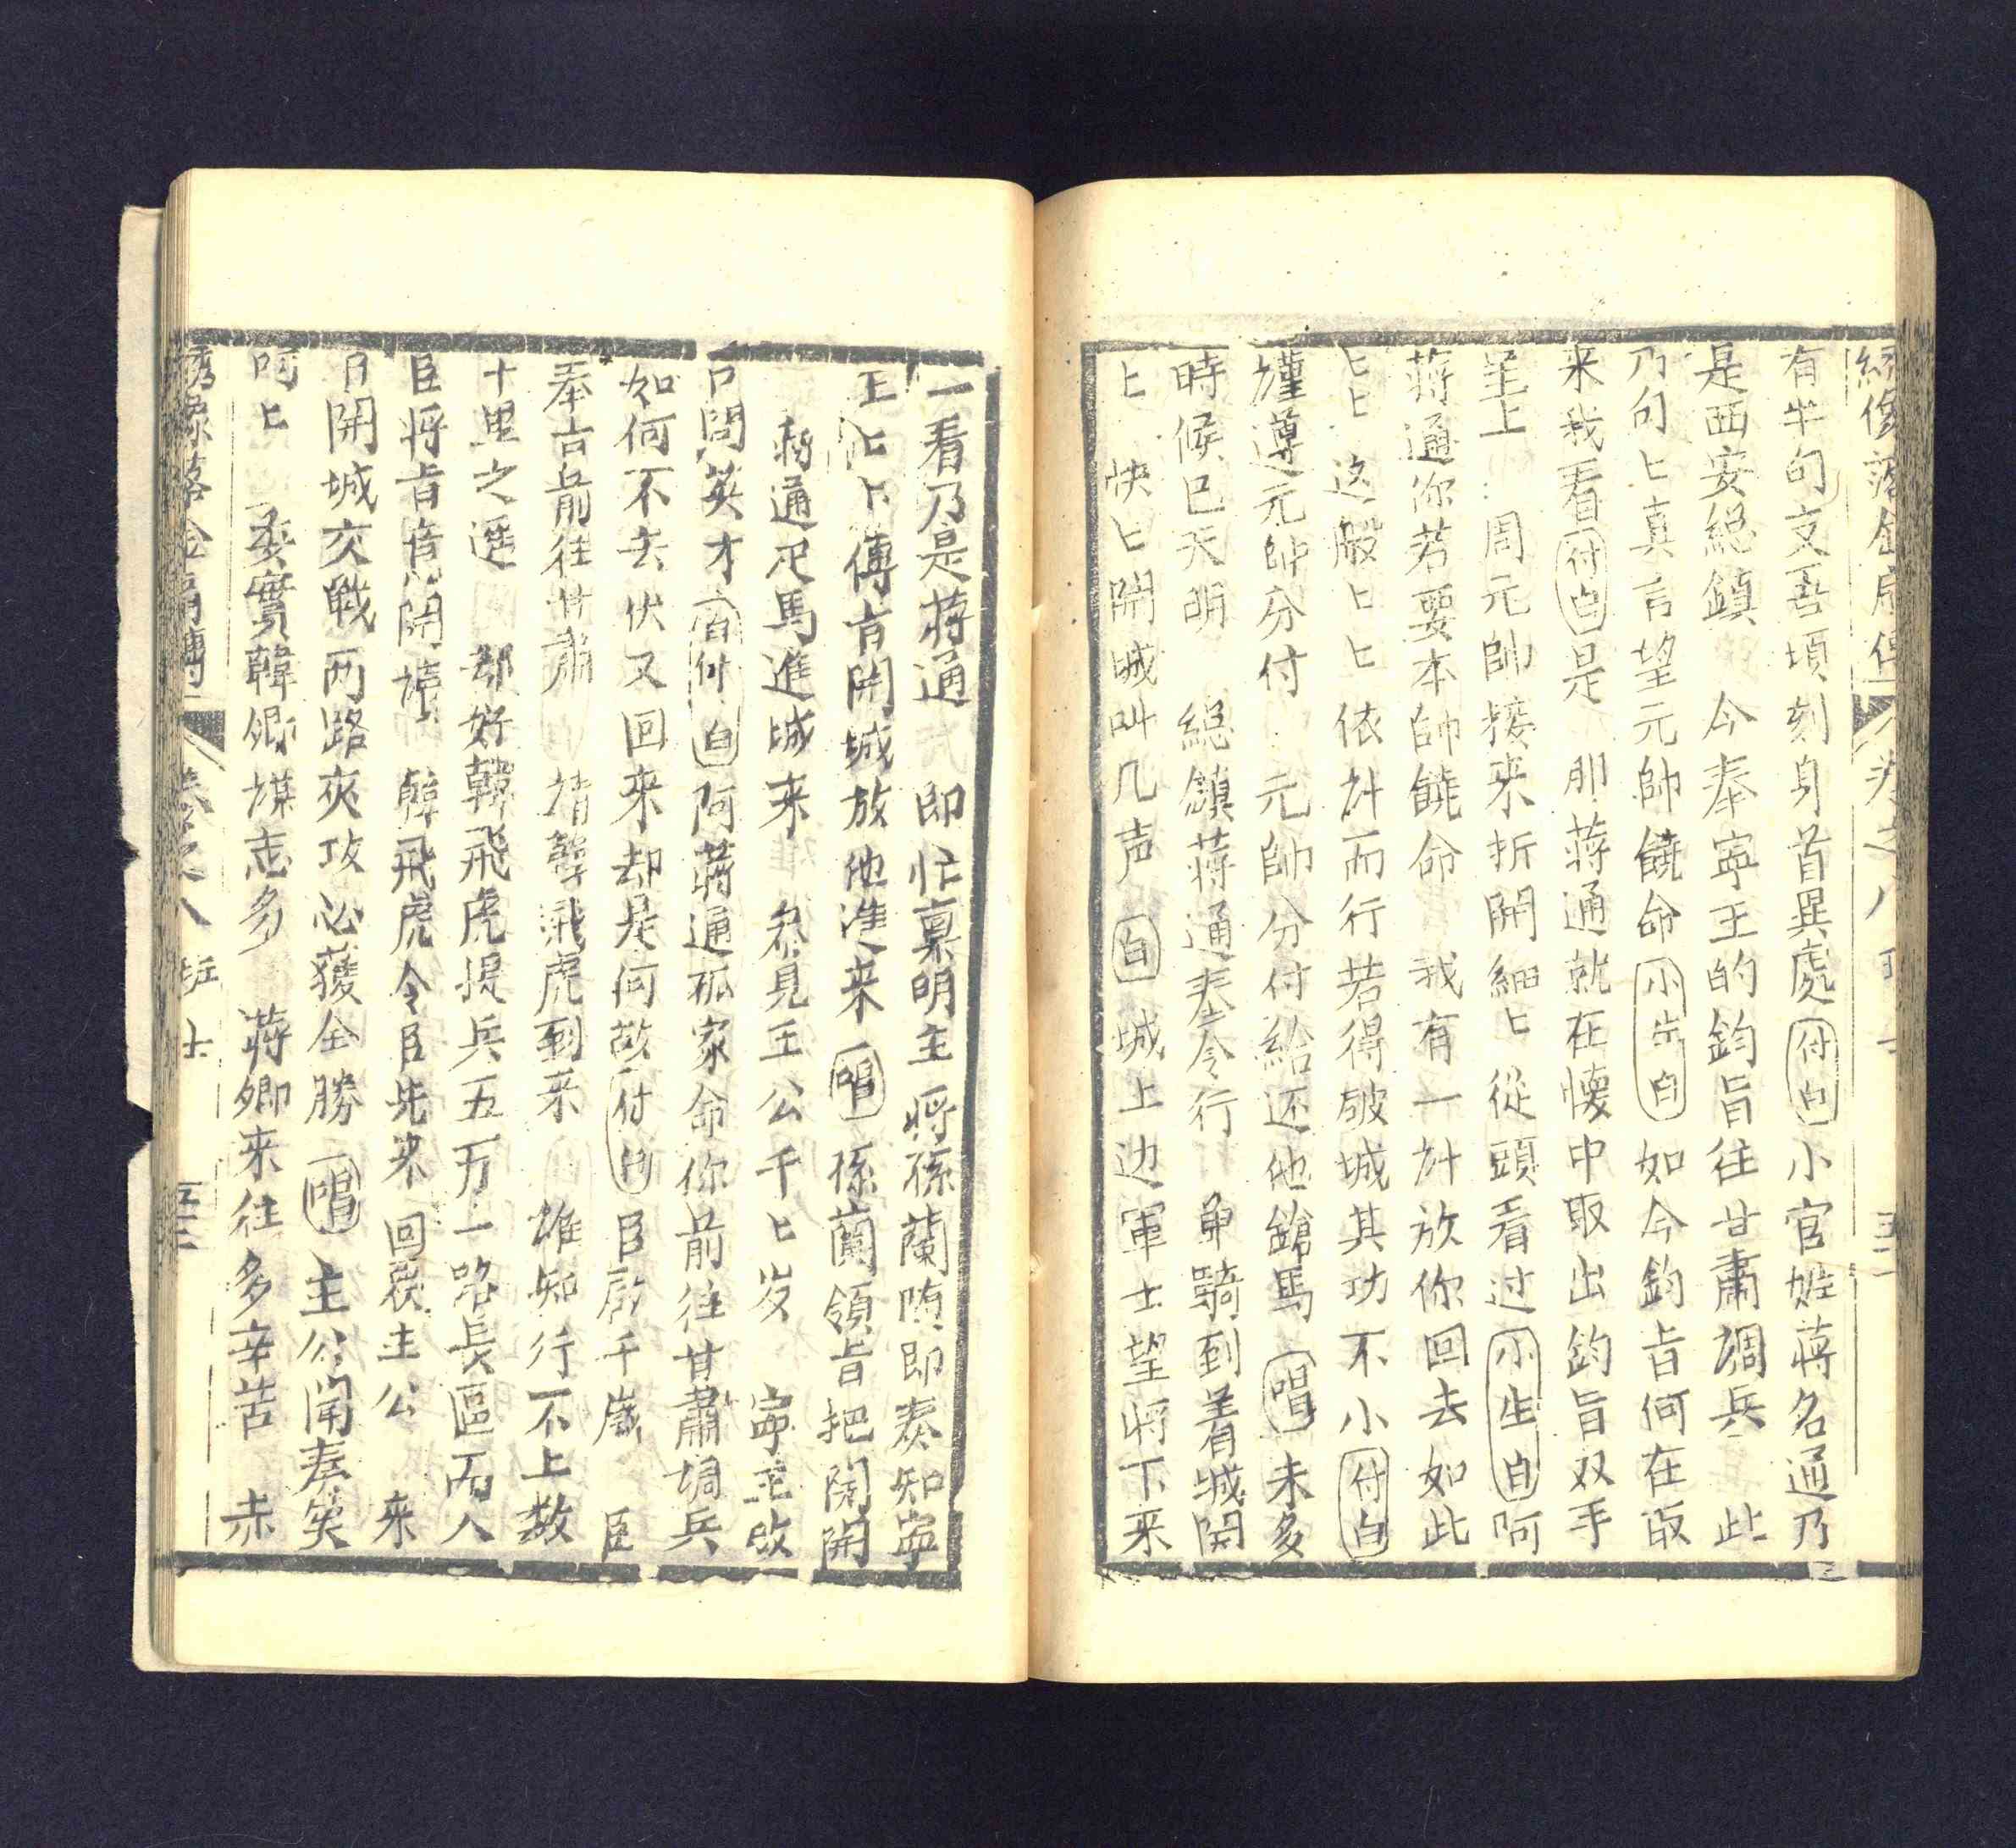 有半句支吾頃刻身首異處付白小官姓蒋名通乃
是西安総鎮 今奉寧王的鈞旨往甘肅調兵 此
乃句匕真言望元帥饒命小生白如今鈞旨何在取
来我看付白是 那蒋通就在懐中取出鈞旨双手
呈上 周元帥接来折開細匕從頭看过小生白阿
蒋通你若要本帥饒命 我有一計放你回去如此
匕匕这般匕匕依計而行若得破城其功不小付白
謹遵元帥分付 元帥分付給还他鎗馬 唱未多
時候已天明 総鎮蒋通奉令行 单騎到着城関
匕 快匕開城叫几声 白城上边軍士望将下来
一看乃是蒋通 即忙禀明主将孫蘭随即奏知寧
王匕匕傳旨開城放他進来 唱孫蘭領旨把関開
蒋通疋馬進城来 叅見王公千匕岁 寧王啟
口問英才 白付白阿蒋通孤家命你前往甘肅調兵
如何不去伏又回来却是何故付白臣啟千歲 臣
奉旨前往甘肅 請韓飛虎到来 誰知行不上数
十里之遥 却好韓飛虎提兵五万一路長區而入
臣将旨意開讀 韓飛虎令臣先来回覆主公 来
日開城交戰两路夾攻必獲全勝 唱主公聞奏笑
呵匕 委實韓卿謀志多 蒋卿来往多辛苦 赤
綉像落金扇傳 卷之八